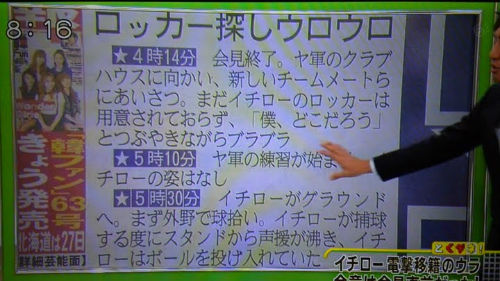 8:16
ロッカー探しウロウロ
★4時14分 会見終了。ヤ軍のクラブ
ハウスに向かい、新しいチームメートら
にあいさつ。まだイチローのロッカーは
用意されておらず、「僕、どこだろう」
とつぶやきながらブラブラ
★5時10分 ヤ軍の練習が始ま
チローの姿はなし
★5時30分 イチローがグラウンド
へ。まず外野で球拾い。イチローが捕球
する度にスタンドから声援が沸き、イチ
ローはボールを投げ入れていた
Wonder
「韓ファン」63号
きょう発売
北海道は27日
詳細芸能面
とくダネ!
イチロー電撃移籍のウラ